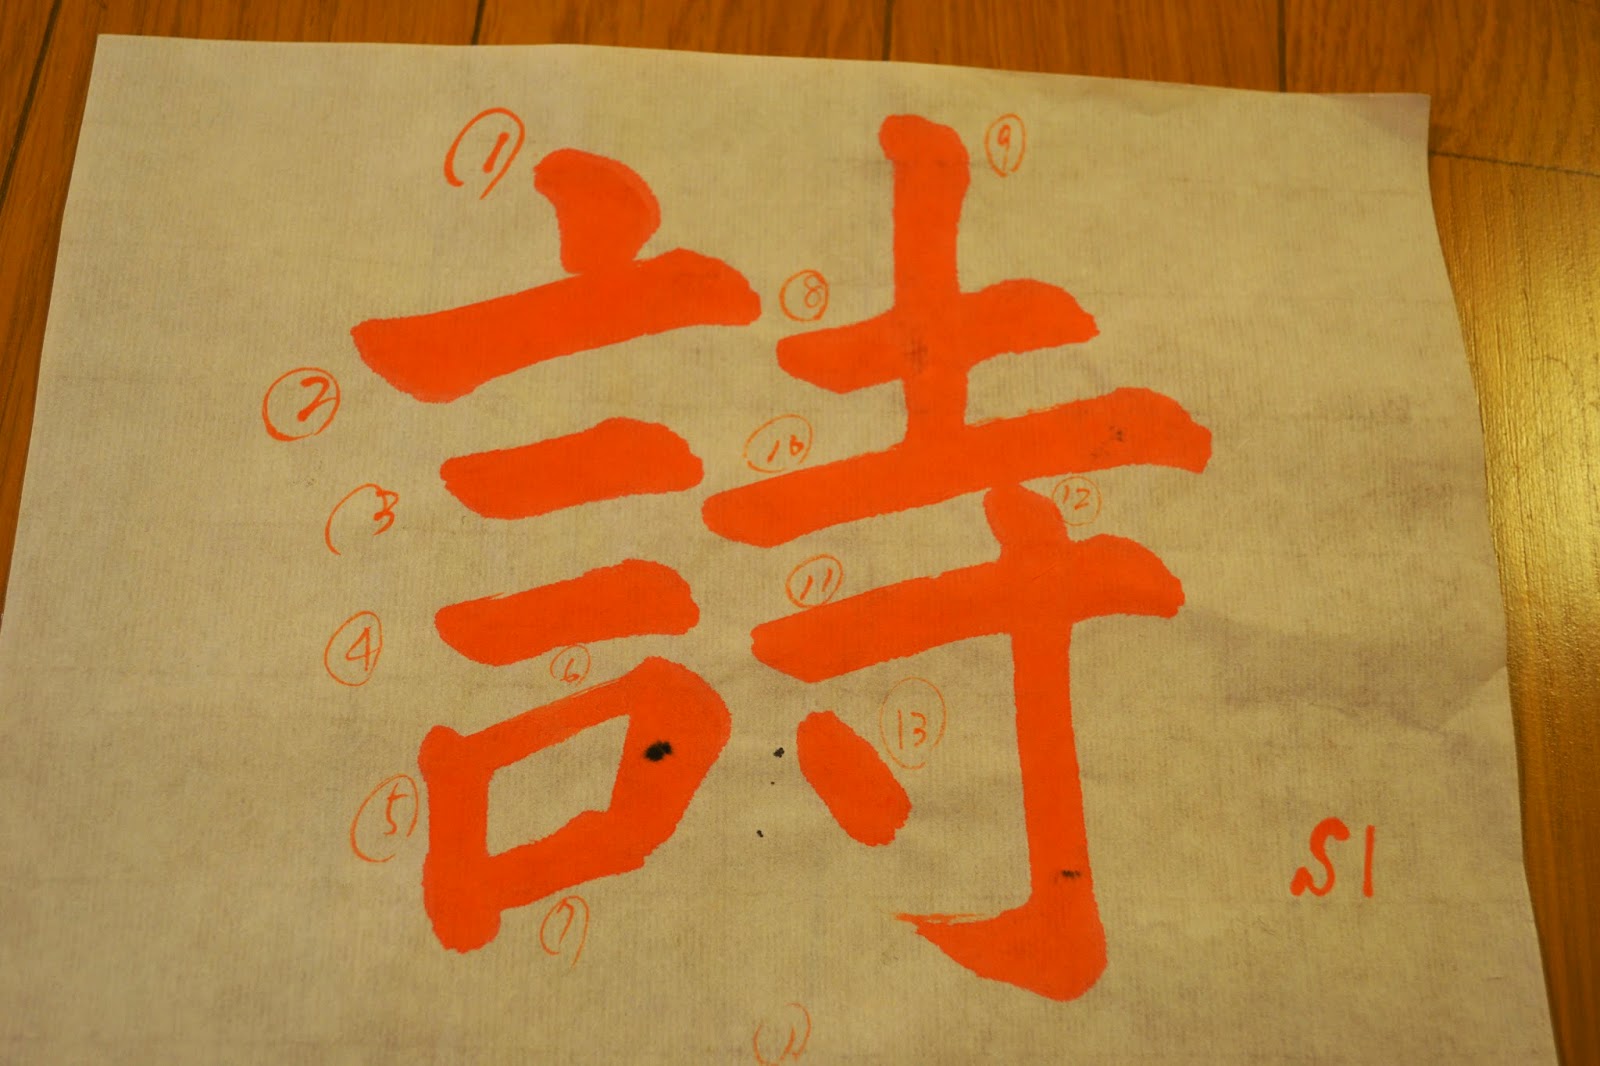 詩
①
②
③
④
⑤
⑥
⑦
⑧
⑨
⑩
⑪
⑫
⑬